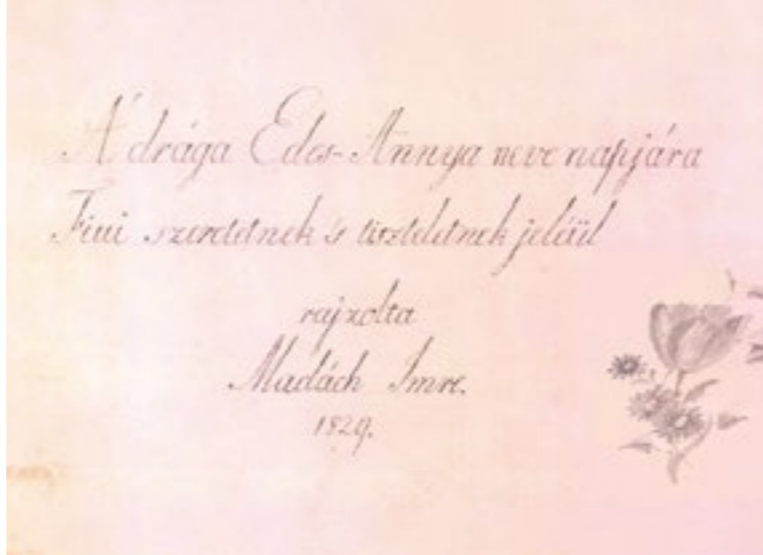 A' drága Edes-Annya neve napjára
Fiui szeretetnek 's tiszteletnek jeléül
rajzolta
Madách Imre.
1829.